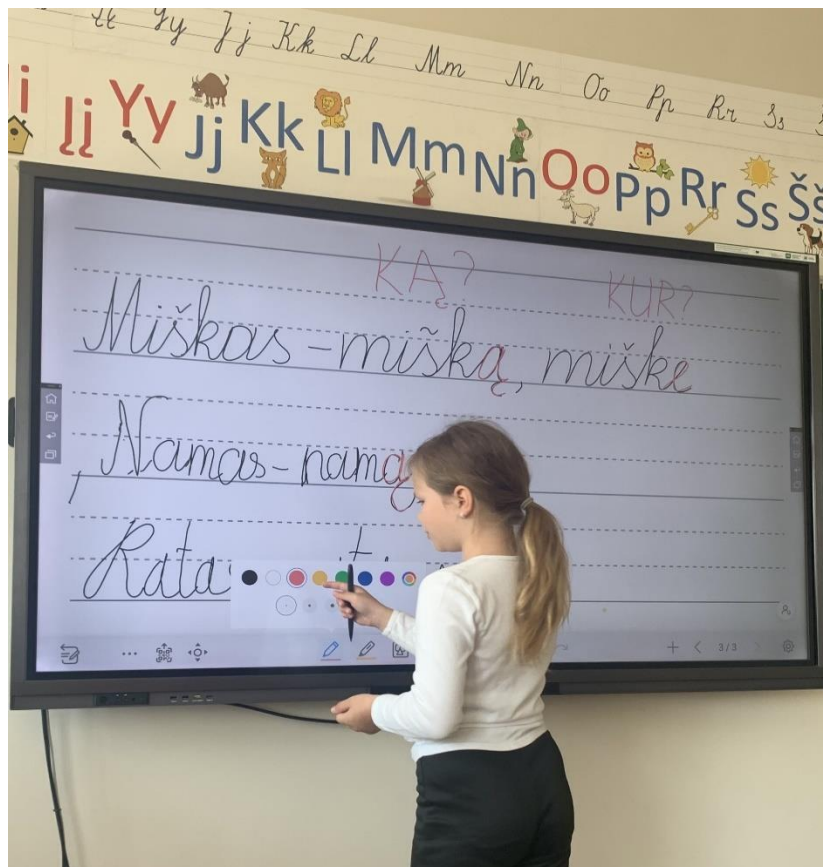 Yy Jj Kk Ll Mm Nn Oo Pp Rr Ss
Įį Yy Jj Kk Ll Mm Nn Oo Pp Rr Ss Šš
KĄ? KUR?
Miškas – mišką, miške
Namas – namą
Rata
3/3